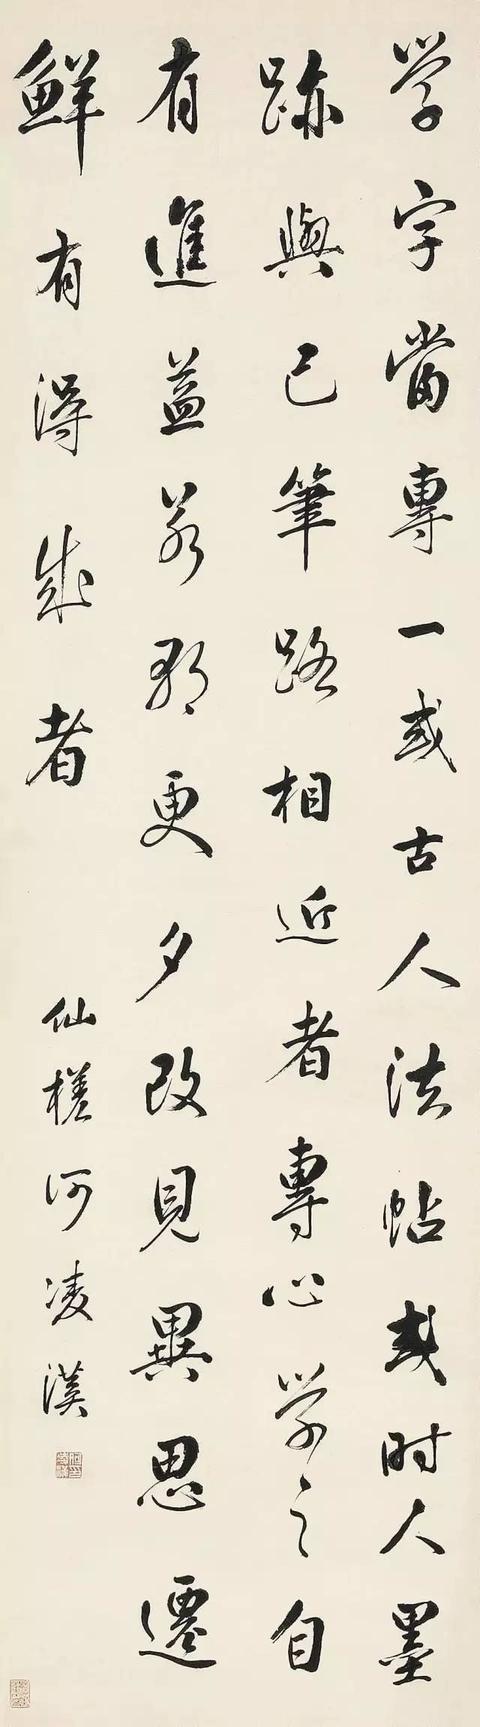 學字當專一或古人法帖或时人墨
跡與己筆路相近者專心学之自
有進益若朝更夕改見異思遷
鮮有得成者
仙槎何凌漢